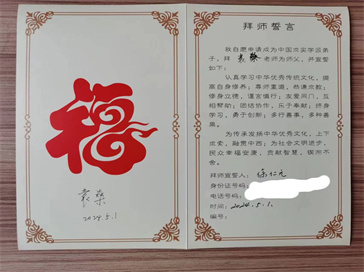 福
袁桑
2024.5.1
拜师誓言
我自愿申请成为中国玄实学派弟
子,拜 袁桑 老师为师父,并宣誓
如下:
认真学习中华优秀传统文化,提
高自身修养;尊师重道,热诚求教;
修身立德,谨言慎行;友爱同门,互
相帮助;团结协作,乐于奉献;终身
学习,勇于创新;多行善事,多种善
果。
为传承发扬中华优秀文化,上下
求索,融贯中西;为社会文明进步,
民众幸福安康,贡献智慧,锲而不
舍。
拜师宣誓人:
身份证号码:
电话号码:
时间:2024.5.1.
编号: